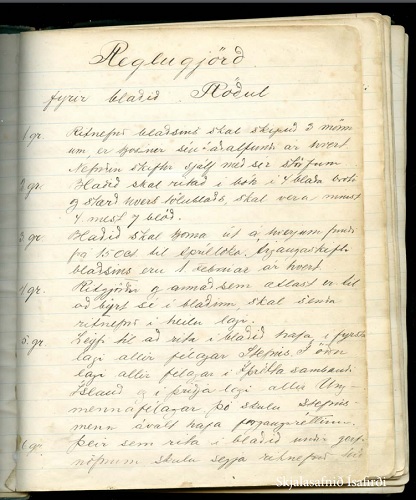 Reglugjörð
fyrir blaðið Röðul
1 gr. Ritnefnd blaðsins skal skipuð 3 mönn
um, er kosnir séu á aðalfundi ár hvert
Nefndin skiftir sjálf með sér störfum
2 gr. Blaðið skal ritað í bók í 4 blaða broti
og stærð hvers tölublaðs, skal vera minst
4 mest 7 blöð.
3 gr. Blaðið skal koma út á hverjum fundi
frá 15 Oct. til apríl loka.
blaðsins eru 1 Febrúar ár hvert.
4 gr. Ritgjörðir og annað sem ætlast er til
að birt sé í blaðinu, skal senda
ritnefnd í heilu lagi.
5 gr. Leyfi til að rita í blaðið hafa í fyrsta
lagi allir félagar Stefnis. Í öðru
lagi allir félagar í Íþrótta sambandi
Ísland og í þriðja lagi allir Ung
mennafélagar þó skulu Stefnis
menn ávalt hafa forgangsréttinn.
6 gr. Þeir sem rita í blaðið undir gerfi
nöfnum skulu segja ritnefnd
Skjalasafnið Ísafirði